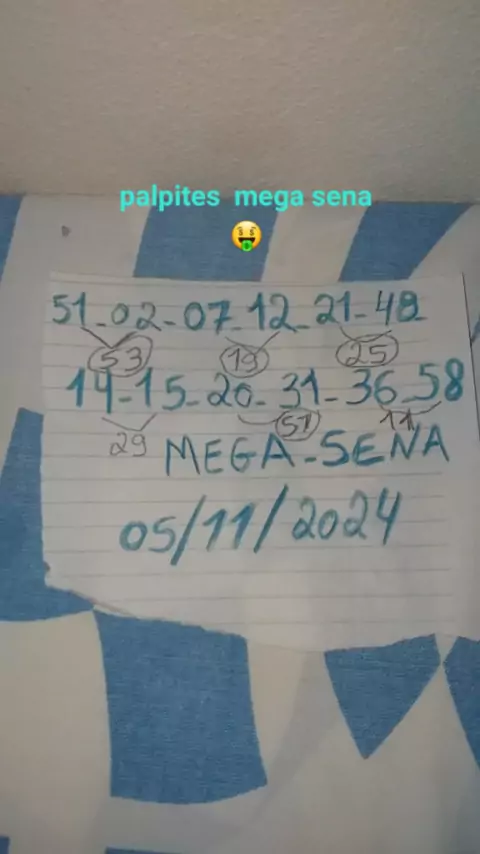 palpites mega sena
51-02-07-12-21-48
53 19 25
14-15-20-31-36-58
29 51 11
MEGA-SENA
05/11/2024